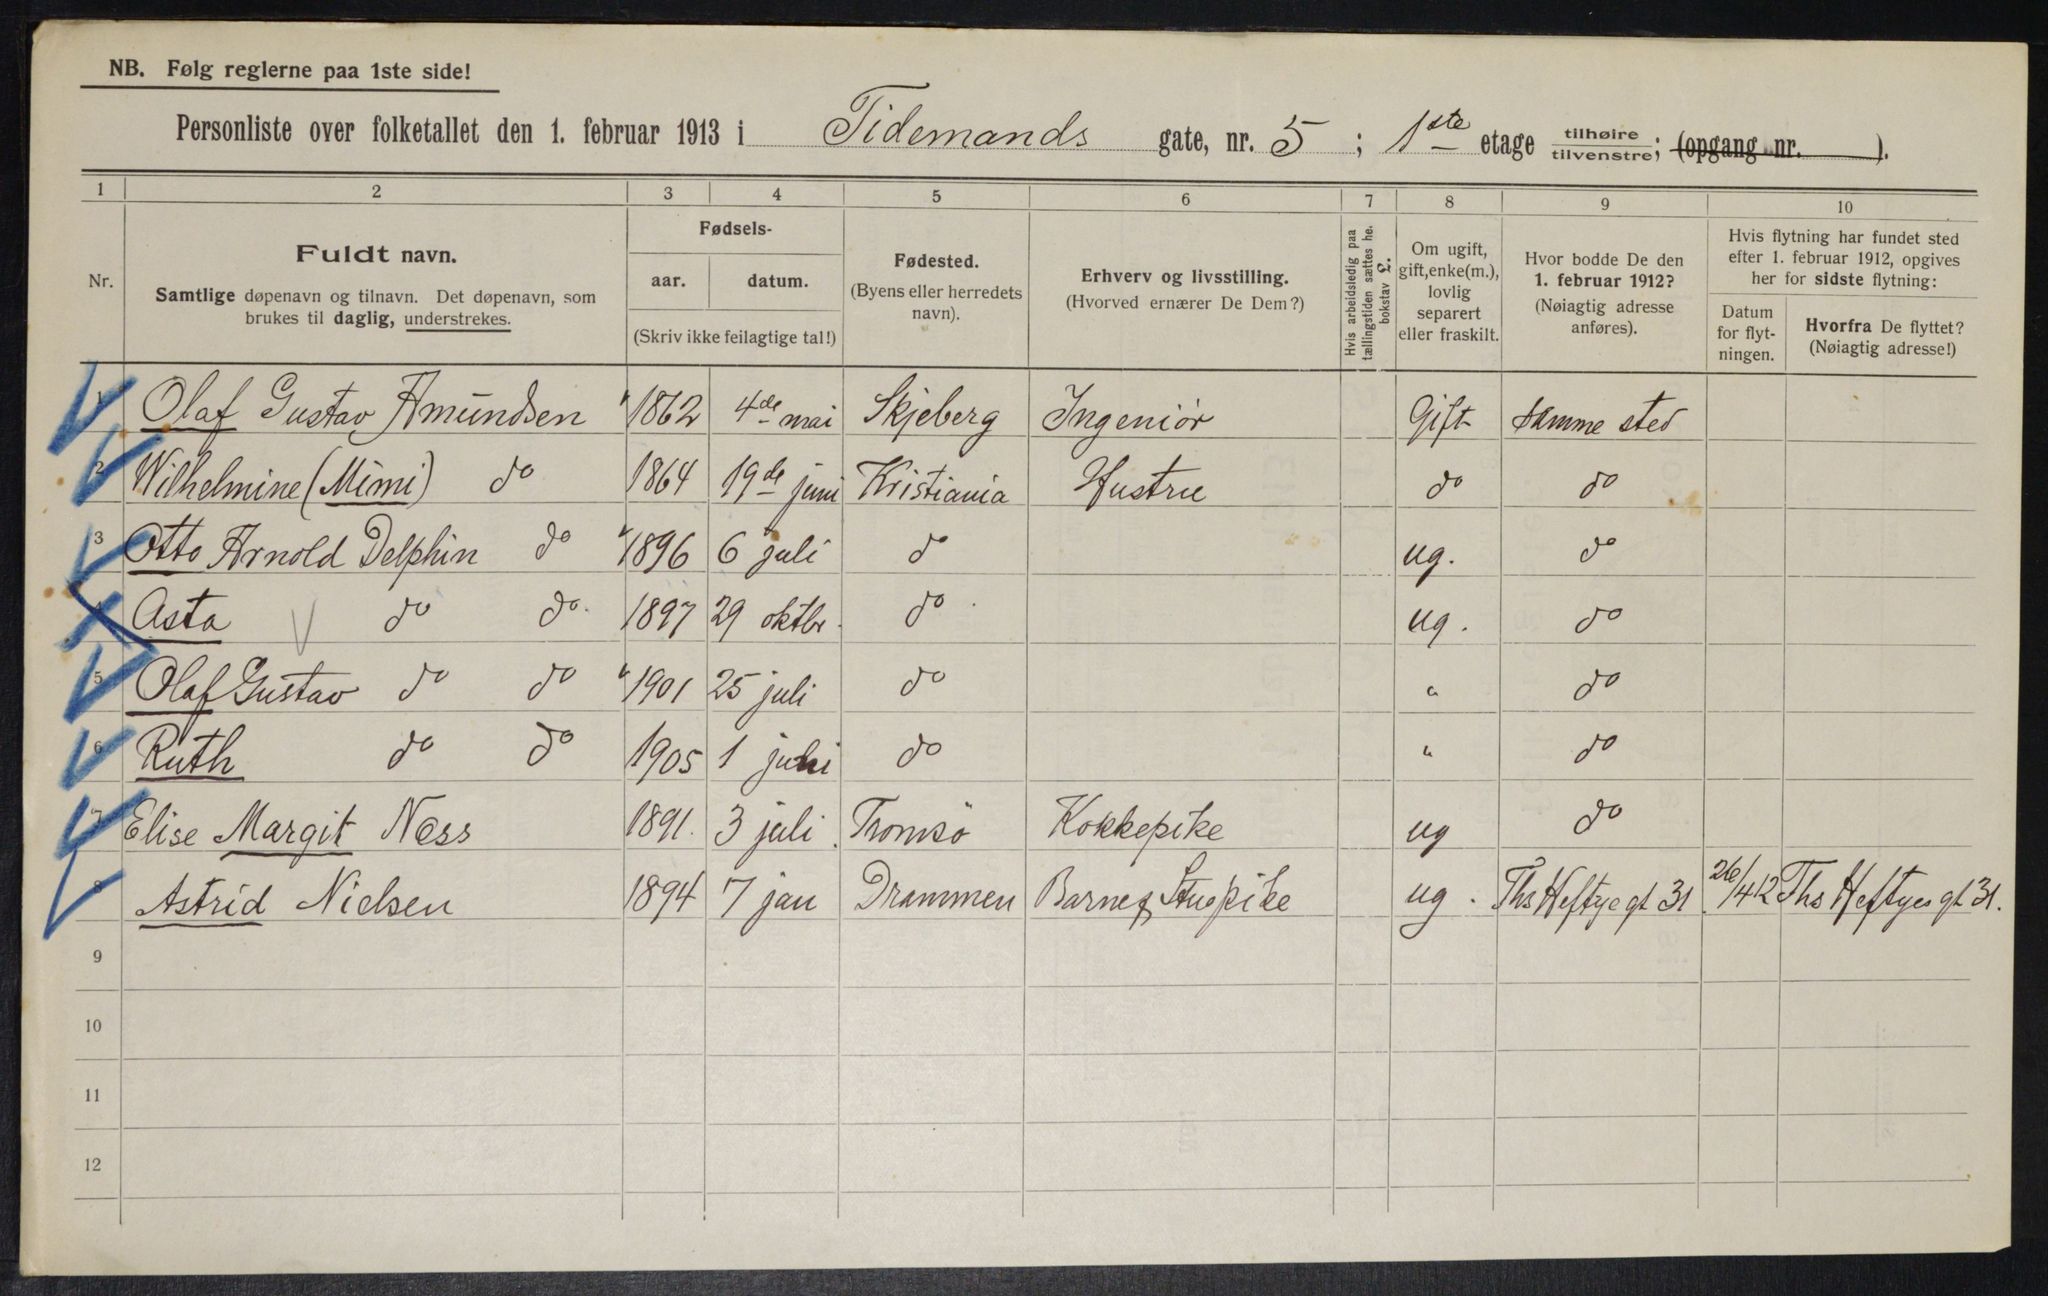 NB. Følg reglerne paa 1ste side!
Personliste over folketallet den 1. februar 1913 i Tidemands gate, nr. 5 ; 1ste etage tilhøire tilvenstre; (opgang nr. ).
1 2 3 4 5 6 7 8 9 10
Nr.
Fuldt navn.
Samtlige døpenavn og tilnavn. Det døpenavn, som
brukes til daglig, understrekes.
Fødsels-
aar. datum.
(Skriv ikke feilagtige tal!)
Fødested.
(Byens eller herredets
navn).
Erhverv og livsstilling.
(Hvorved ernærer De Dem?)
Hvis arbeidsledig paa
tællingstiden sættes he.
bokstav £.
Om ugift,
gift, enke(m.),
lovlig
separert
eller fraskilt.
Hvor bodde De den
1. februar 1912?
(Nøiagtig adresse
anføres).
Hvis flytning har fundet sted
efter 1. februar 1912, opgives
her for sidste flytning:
Datum
for flyt-
ningen.
Hvorfra De flyttet?
(Nøiagtig adresse!)
1 Olaf Gustav Amundsen 1862 4de mai Skjeberg Ingeniör Gift samme sted
2 Wilhelmine (Mimi) do 1864 19de juni Kristiania Hustru do do
3 Otto Arnold Delphin do 1896 6 juli do ug. do
4 Asta do do 1897 29 oktbr. do ug. do
5 Olaf Gustav do do 1901 25 juli do " do
6 Ruth do do 1905 1 juli do " do
7 Elise Margit Ness 1891. 3 juli. Tromsö Kokkepike ug do
8 Astrid Nielsen 1894 7 jan Drammen Barne & Stuepike ug. Ths Heftye gt 31. 26/4 12 Ths Heftyes gt 31.
9
10
11
12